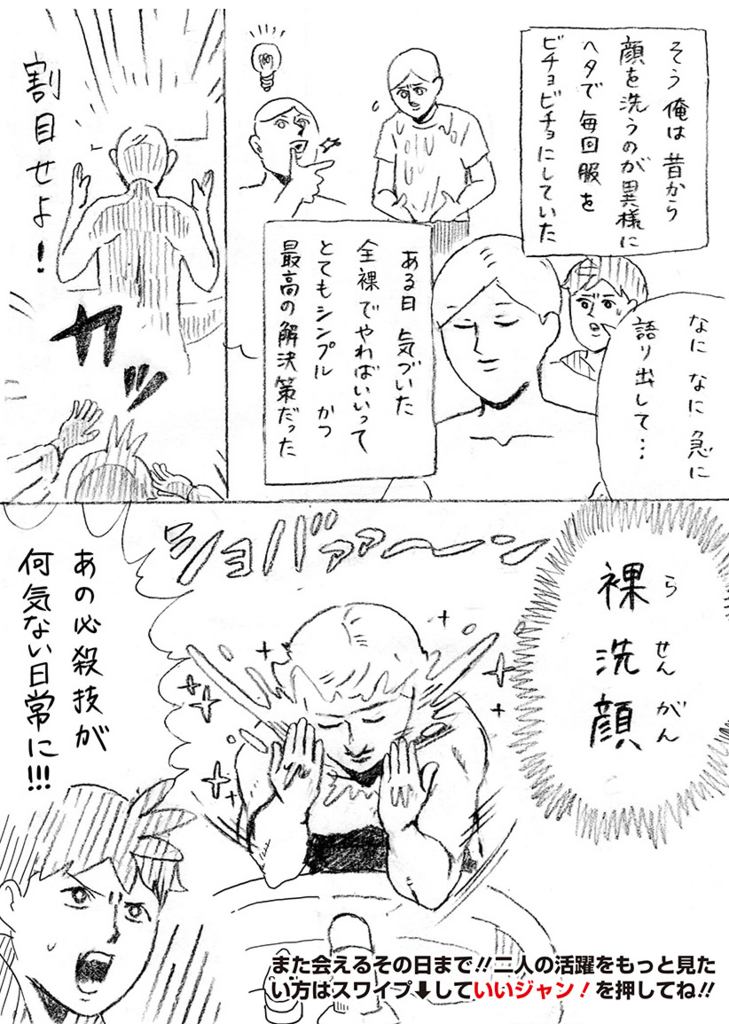 なに なに 急に
語り出して…
そう 俺は 昔から
顔を洗うのが異様に
ヘタで 毎回服を
ビチョビチョにしていた
ある日 気づいた
全裸でやればいいって
とてもシンプル かつ
最高の解決策だった
割目せよ!
カッ
裸洗顔
らせんがん
ショバァァ〜ン
あの必殺技が
何気ない日常に!!!
また会えるその日まで!!二人の活躍をもっと見た
い方はスワイプ⬇していいジャン!を押してね!!